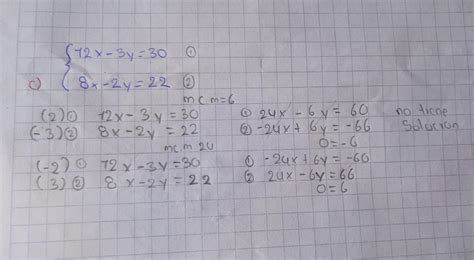 12x-3y=30 ①
c) 8x-2y=22 ②
mcm=6
(2)① 12x-3y=30 ① 24x-6y=60 no tiene
(-3)② 8x-2y=22 ② -24x+6y=-66 Solucion
mcm 24 0=-6
(-2)① 12x-3y=30 ① -24x+6y=-60
(3)② 8x-2y=22 ② 24x-6y=66
0=6